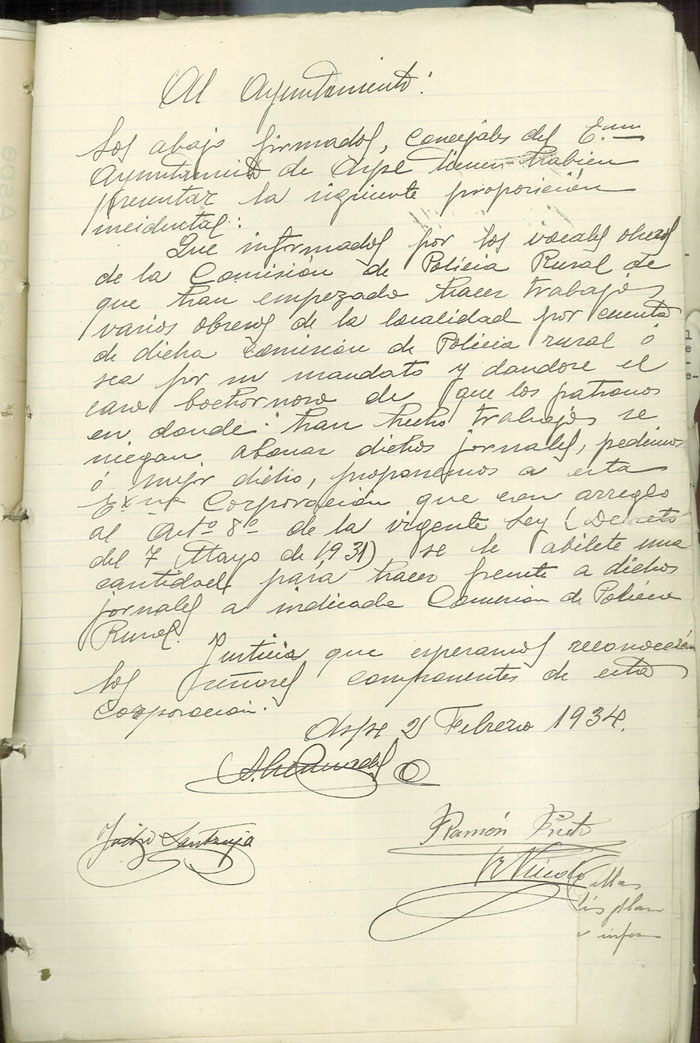 Al Ayuntamiento:
Los abajo firmados, concejales del Exmo
Ayuntamiento de Aspe tienen habien
presentar la siguiente proposición
incidental:
Que informados por los vocales obreros
de la Comisión de Policia Rural de
que han empezado hacer trabajos
varios obreros de la localidad por cuenta
de dicha Comisión de Policia rural ó
sea por su mandato y dandose el
caso bochornoso de que los patronos
en donde han hecho trabajos se
niegan abonar dichos jornales, pedimos
ó mejor dicho, proponemos a esta
Exma Corporación que con arreglo
al Artº 8º de la vigente Ley (Decreto
del 7 Mayo de 1931) se le abilete una
cantidad para hacer frente a dichos
jornales a indicada Comision de Policia
Rural.
Justicia que esperamos reconoceran
los señores componentes de esta
Corporación.
Aspe 2 Febrero 1934.
Ramón Prieto